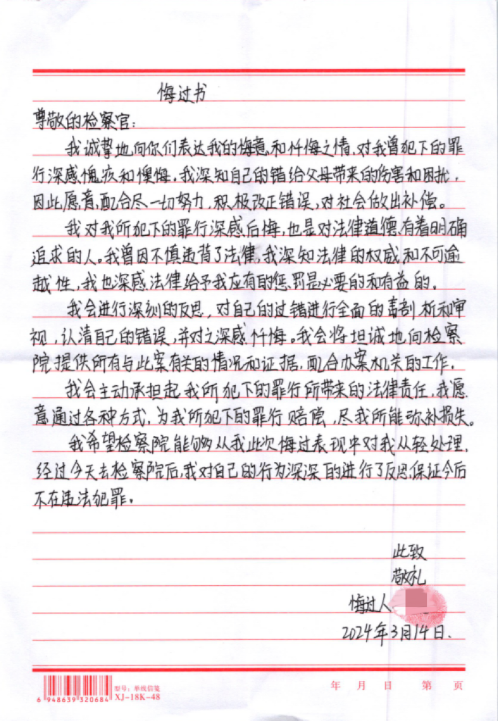 悔过书
尊敬的检察官：
我诚挚地向你们表达我的悔意和忏悔之情，对我曾犯下的罪
行深感愧疚和懊悔，我深知自己的错给父母带来的伤害和困扰，
因此，愿意配合尽一切努力，积极改正错误，对社会做出补偿。
我对我所犯下的罪行深感后悔，也是对法律道德有着明确
追求的人。我曾因不慎违背了法律，我深知法律的权威和不可逾
越性，我也深感法律给予我应有的惩罚是必要的和有益的。
我会进行深刻的反思，对自己的过错进行全面的剖析和审
视，认清自己的错误，并对之深感忏悔。我会将坦诚地向检察
院提供所有与此案有关的情况和证据，配合办案机关的工作。
我会主动承担起我所犯下的罪行所带来的法律责任，我愿
意通过各种方式，为我所犯下的罪行赔偿，尽我所能弥补损失。
我希望检察院能够从我此次悔过表现中对我从轻处理，
经过今天去检察院后，我对自己的行为深深的进行了反思，保证今后
不在违法犯罪。
此致
敬礼
悔过人
2024年3月14日.
6948639320684
型号：单线信笺
XJ-18K-48
年 月 日 第 页